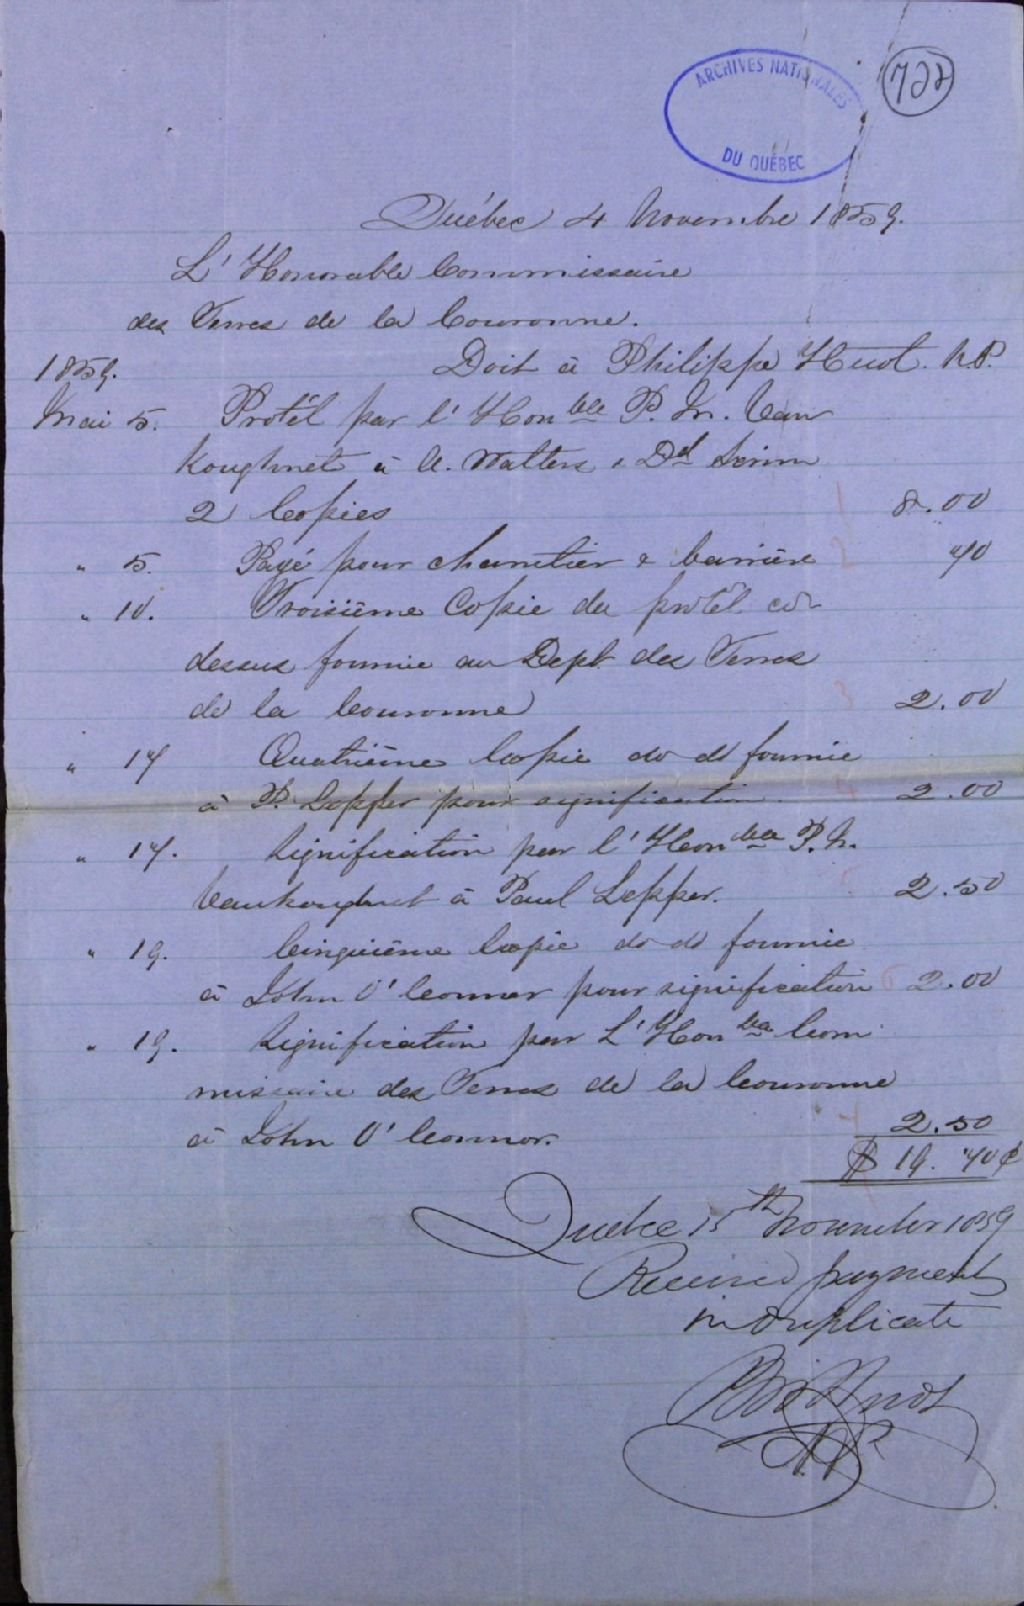 ARCHIVES NATIONALES
DU QUÉBEC
722
Québec 4 Novembre 1859.
L'Honorable Commissaire
des Terres de la Couronne.
Doit à Philippe Huot. N.P.
1859.
Mai 5. Protêt par l'Honble P. M. Van
Koughnet à A. Walters & Dd
2 Copies 8.00
" 5. Payé pour charretier & barrière 40
" 10. Troisième Copie du protêt ci
dessus fournie au Dept des Terres
de la Couronne 2.00
" 17 Quatrième Copie do do fournie
à P. Lepper pour signification. 2.00
" 17. Signification par l'Honble P. M.
Vankoughnet à Paul Lepper. 2.50
" 19. Cinquième Copie do do fournie
à John O'Connor pour signification 2.00
" 19. Signification par L'Honble Com
missaire des Terres de la Couronne
à John O'Connor. 2.50
$ 19.40¢
Quebec 15th November 1859
Received payment
in duplicate
Ph. Huot
N.P.